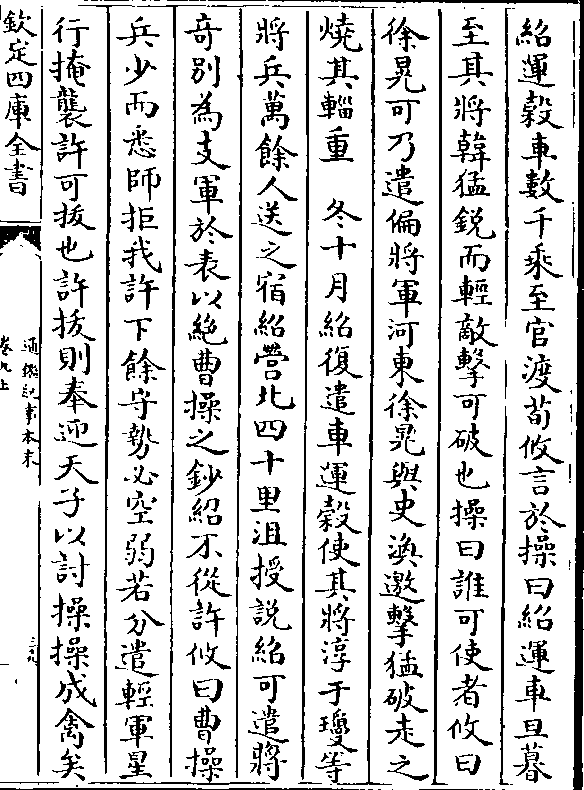 紹運穀車數千乘至官渡荀攸言於操曰紹運車旦暮
至其將韓猛銳而輕敵擊可破也操曰誰可使者攸曰
徐晃可乃遣偏將軍河東徐晃與史渙邀擊猛破走之
燒其輜重　冬十月紹復遣車運穀使其將淳于瓊等
將兵萬餘人送之宿紹營北四十里沮授説紹可遣將
奇別為支軍於表以絶曹操之鈔紹不從許攸曰曹操
兵少而悉師拒我許下餘守勢必空弱若分遣輕軍星
行掩襲許可拔也許拔則奉迎天子以討操操成禽矣
欽定四庫全書
通鑑紀事本末
卷九上